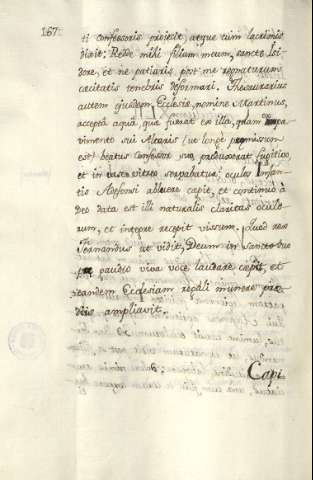 167.
ti confessoris projecit, atque cum lacrimis
dixit: Redde mihi filium meum, sancte Isi-
dore, et ne patiaris post me regnaturum
cæcitatis tenebris deformari. Thesaurarius
autem ejusdem Ecclesiæ, nomine Martinus,
accepta aqua, quæ fuerat ex illa, quam pa-
vimento sui Altaris (ut longè præmissum
est) beatus Confessor produxerat
et in vase vitreo servabatur; oculos Infan-
tis Adefonsi abluere cœpit, et continuò à
Deo data est illi naturalis claritas oculo-
rum, et integrè recepit vissum. Quod Rex
Fernandus ut vidit, Deum in Sancto suo
præ gaudio viva voce laudare cœpit, et
eandem Ecclesiam regali munere
ampliavit.
Capi